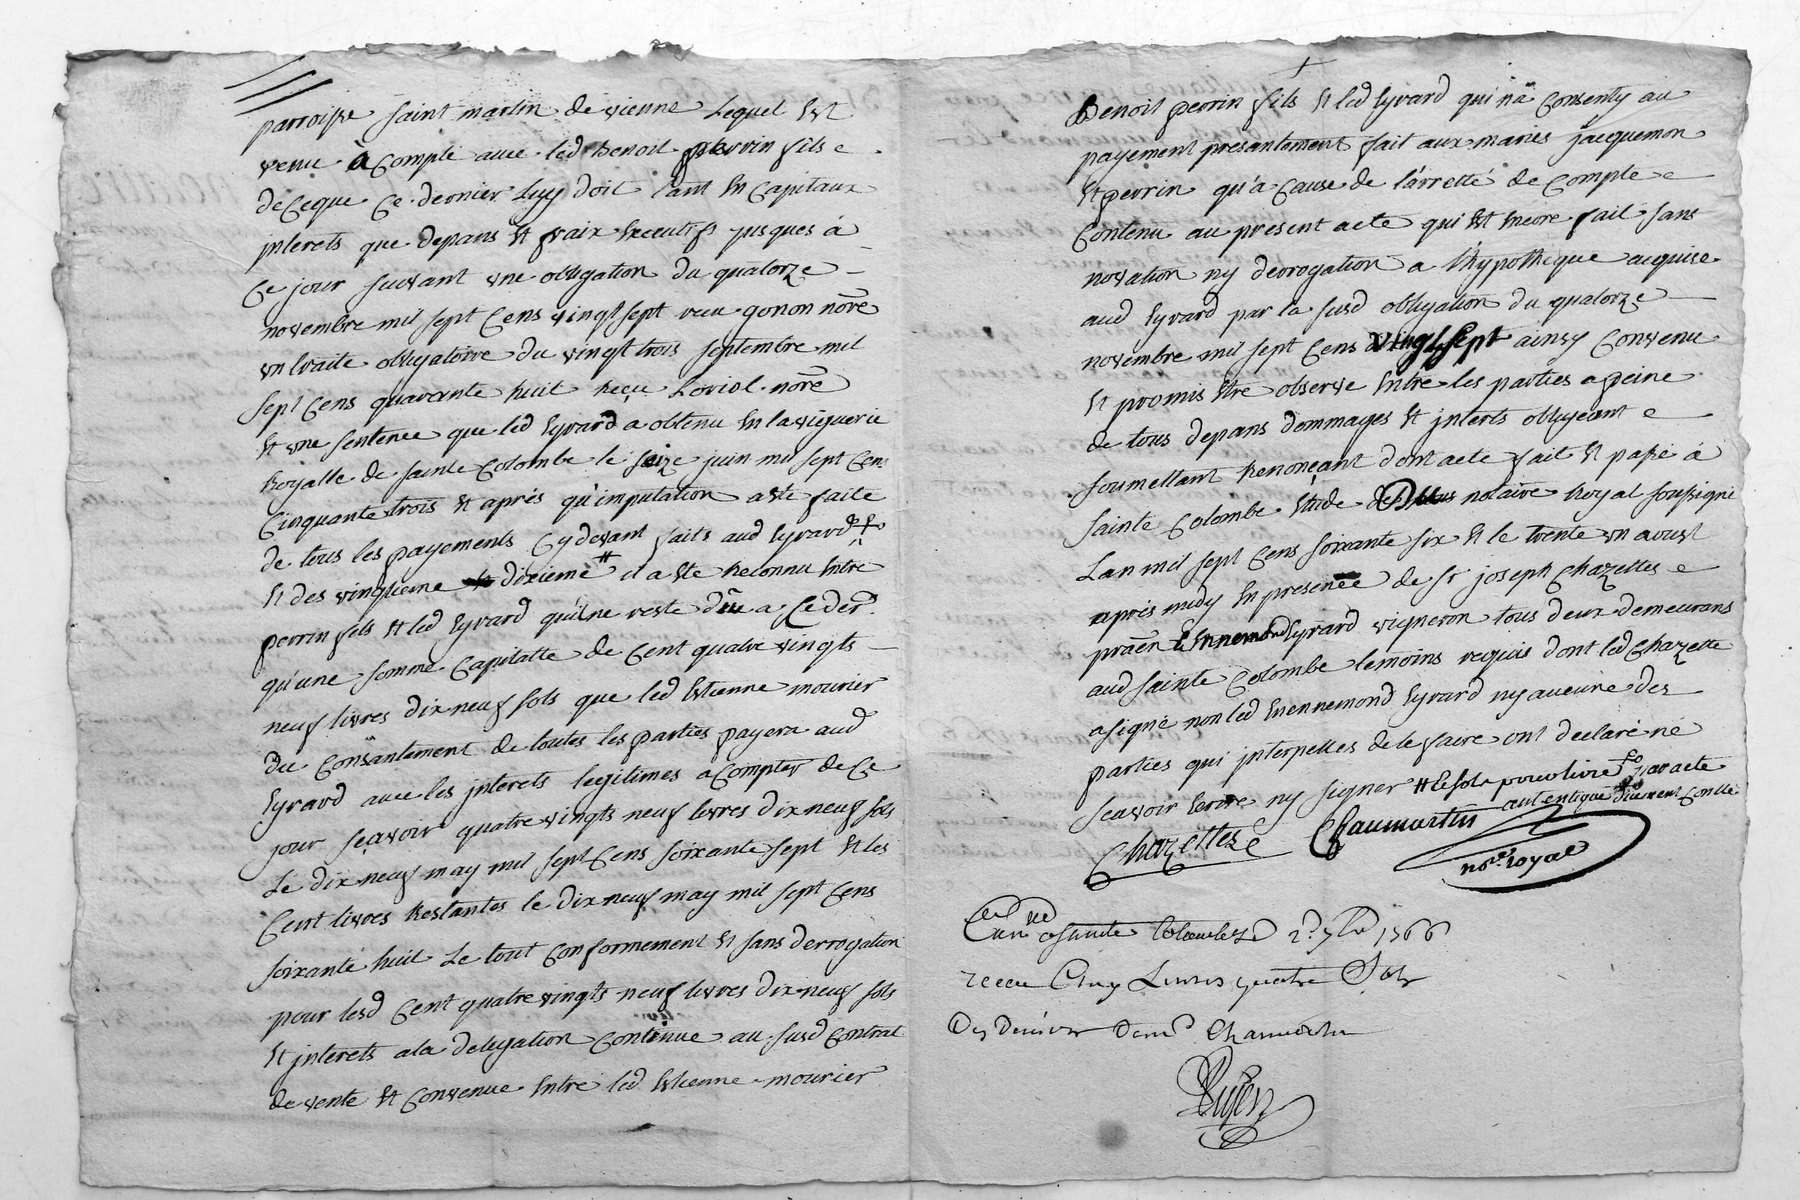 parroisse saint martin de vienne Lequel Est
venu a Compte avec led Benoit perrin fils
de Ceque Ce dernier Luy doit tant En Capitaux
jnterets que depans Et fraix Executifs jusques à
Ce jour suivant une obligation du quatorze
novembre mil sept Cens vingt sept receu gonon nore
un traite obligatoire du vingt trois septembre mil
sept Cens quarante huit Reçu Loriol nore
Et une sentence que led Eyrard a obtenu En la viguerie
Royalle de sainte Colombe le seize juin mil sept Cens
Cinquante trois Et aprés qu'imputation a été faite
de tous les payements Cy devant faits aud Eyrard
Et des vingtieme dixieme # il a ete Reconnu Entre
perrin fils Et led Eyrard qu'il ne reste dü a Ce der.
qu'une somme Capitalle de Cent quatre vingts
neuf livres dix neuf sols que led Estienne mourier
du Consantement de toutes les parties payera aud
Eyrard avec les jnterets legitimes a Compter de Ce
jour sçavoir quatre vingts neuf livres dix neuf sols
Le dix neuf may mil sept Cens soixante sept Et les
Cent livres Restantes le dix neuf may mil sept Cens
soixante huit Le tout Conformement Et sans derrogation
pour lesd Cent quatre vingts neuf livres dix neuf sols
Et jnterets a la delegation Contenue au susd Contrat
de vente Et Convenue Entre led Estienne mourier
Benoit perrin fils Et led Eyrard qui n'a Consenty au
payement presantement fait aux maries jacquemon
Et perrin qu'a Cause de l'arretté de Compte
Contenu au present acte qui Est Encore fait sans
novation ny derogation a l'hypotheque acquise
aud Eyrard par la susd obligation du quatorze
novembre mil sept Cens vingt sept ainsy Convenu
Et promis Etre observé Entre les parties a peine
de tous depans dommages Et jnterts obligeant
soumettant Renonçant dont acte fait Et passé à
sainte Colombe Etude notaire Royal soussigné
Lan mil sept Cens soixante six Et le trente un aoust
aprés midy En presence de Sr joseph Chazettes
praèn Ennemond Eyrard vigneron tous deux demeurans
aud sainte Colombe temoins requis dont led Chazette
a signé non led Ennemond Eyrard ny aucune des
parties qui jnterpelles de le faire ont declaré ne
scavoir Ecrire ny signer # le sol pour livre par acte
autentique
Chazettes
Chaumartin
nore royal
sainte Colombe 2e 7bre 1766
receu Cinq Livres quatre Sols
Six Deniers dud Chaumartin